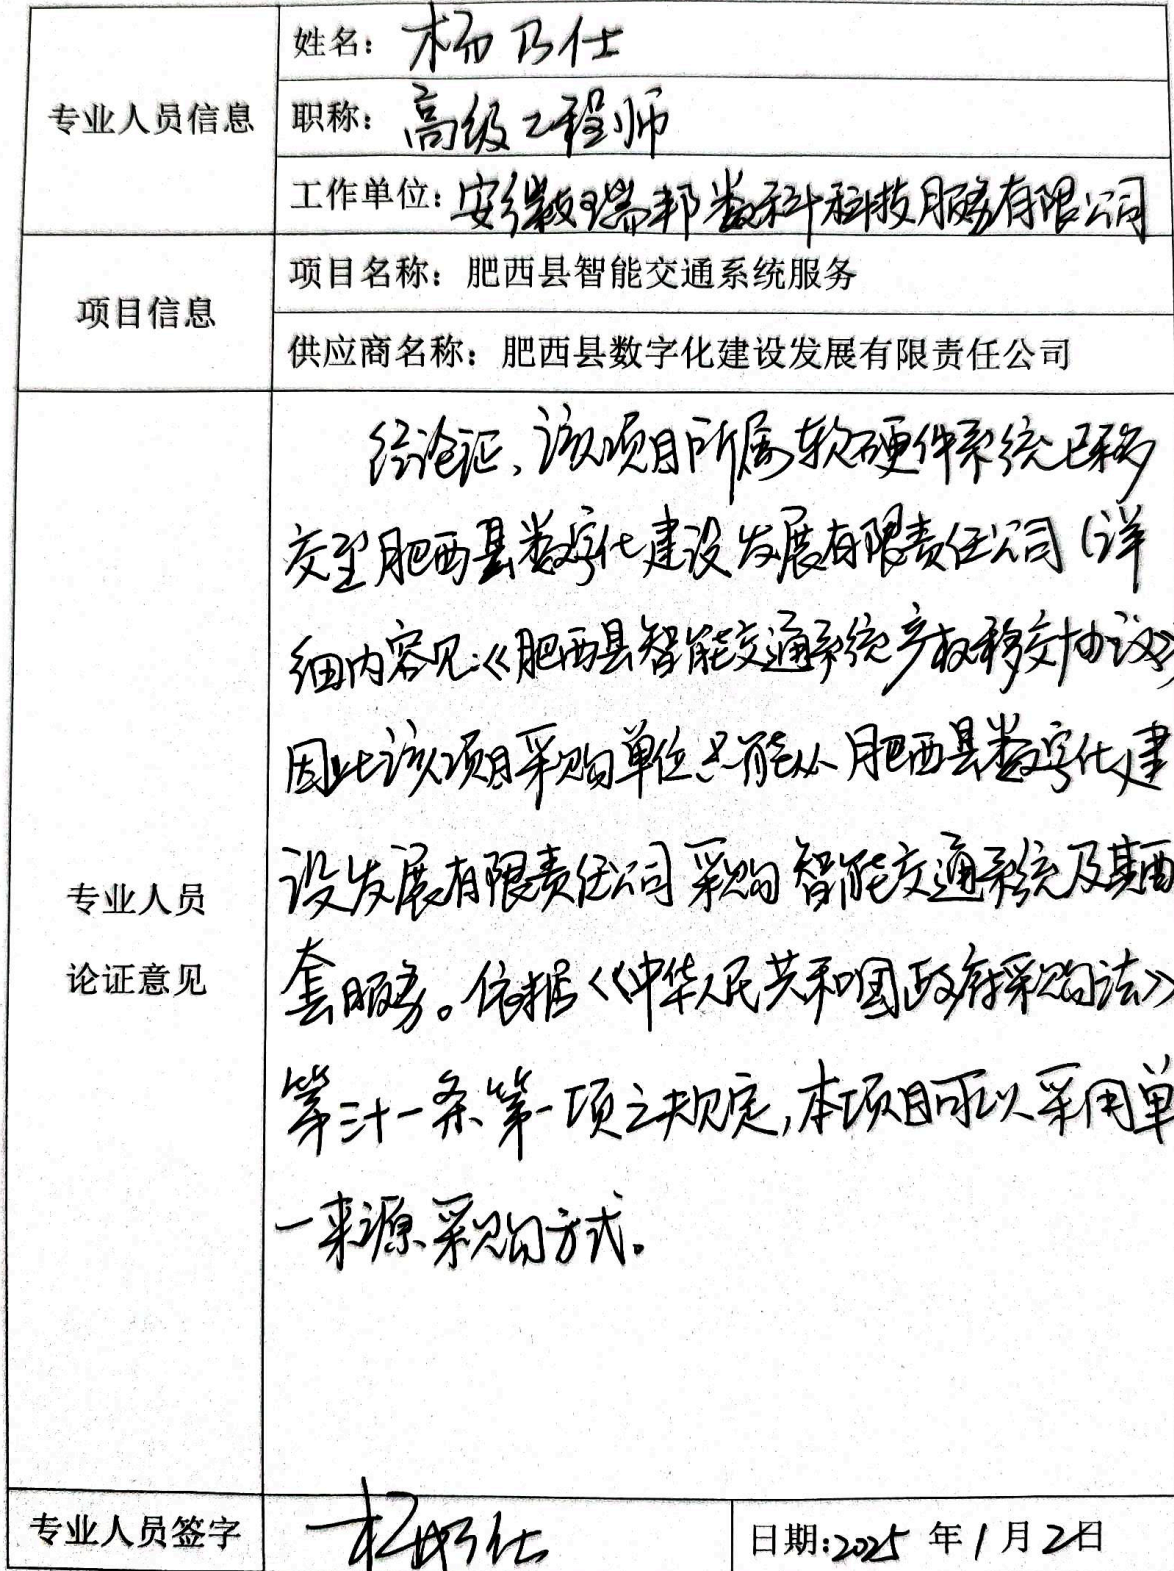 专业人员信息
姓名：杨乃仕
职称：高级工程师
工作单位：安徽瑞邦数科科技服务有限公司
项目信息
项目名称：肥西县智能交通系统服务
供应商名称：肥西县数字化建设发展有限责任公司
专业人员
论证意见
经论证，该项目所属软硬件系统已移
交至肥西县数字化建设发展有限责任公司（详
细内容见：《肥西县智能交通系统产权移交协议》
因此该项目采购单位只能从肥西县数字化建
设发展有限责任公司采购智能交通系统及其配
套服务。依据《中华人民共和国政府采购法》
第三十一条第一项之规定，本项目可以采用单
一来源采购方式。
专业人员签字
杨乃仕
日期：2025年1月2日